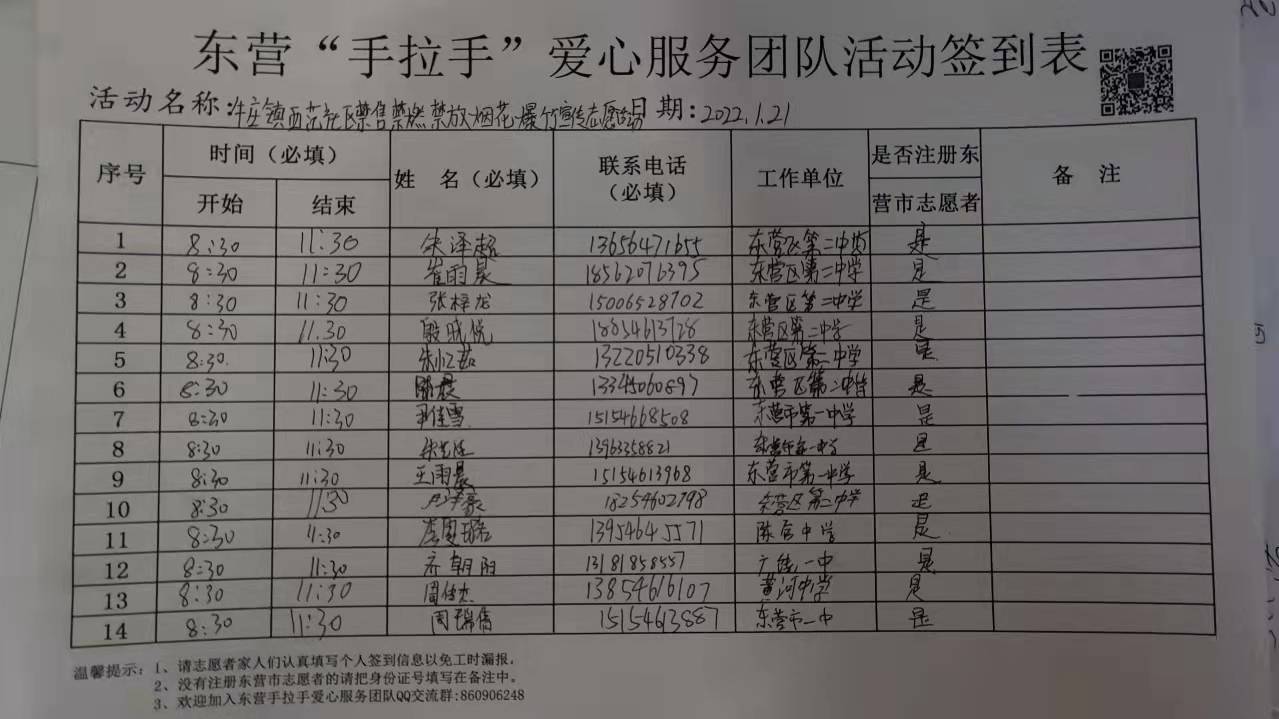 东营“手拉手”爱心服务团队活动签到表
活动名称:牛庄镇西范社区禁售禁燃禁放烟花爆竹宣传志愿活动 日期:2022.1.21
序号 时间(必填) 姓 名(必填) 联系电话(必填) 工作单位 是否注册东营市志愿者 备 注
开始 结束
1 8:30 11:30 朱泽超 13656471655 东营区第二中学 是
2 8:30 11:30 崔雨晨 18562076395 东营区第二中学 是
3 8:30 11:30 张梓龙 15006528702 东营区第二中学 是
4 8:30 11.30 殷晓悦 18854613728 东营区第二中学 是
5 8:30. 11:30 朱忆茹 13220510338 东营区第二中学 是
6 8:30 11:30 13345060897 东营区第二中学 是
7 8:30 11:30 佳雪 15154668508 东营市第一中学 是
8 8:30 11:30 13963358821 东营市第一中学 是
9 8:30 11:30 王雨晨 15154613968 东营市第一中学 是
10 8:30 1130 18254602798 东营区第二中学 是
11 8:30 11:30 13954645571 陈官中学 是
12 8:30 11:30 齐朝阳 13181858557 广饶一中 是
13 8:30 11:30 周传杰 13854616107 黄河中学 是
14 8:30 11:30 周瑞倩 15154613887 东营市一中 是
温馨提示:1、请志愿者家人们认真填写个人签到信息以免工时漏报。
2、没有注册东营市志愿者的请把身份证号填写在备注中。
3、欢迎加入东营手拉手爱心服务团队QQ交流群:860906248